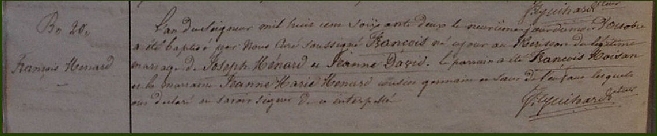 Bo 20.
François Hénard
L'an du Seigneur mil huit cent soixante deux le neuvième jour de
a été baptisé par Nous Curé soussigné François né ce jour au du légitime
mariage de Joseph Hénard et Jeanne David. Le parrain a été François
et la marraine Jeanne Marie Hénard cousine germaine de l'enfant lesquels
ont déclaré ne savoir signer de ce interpellé